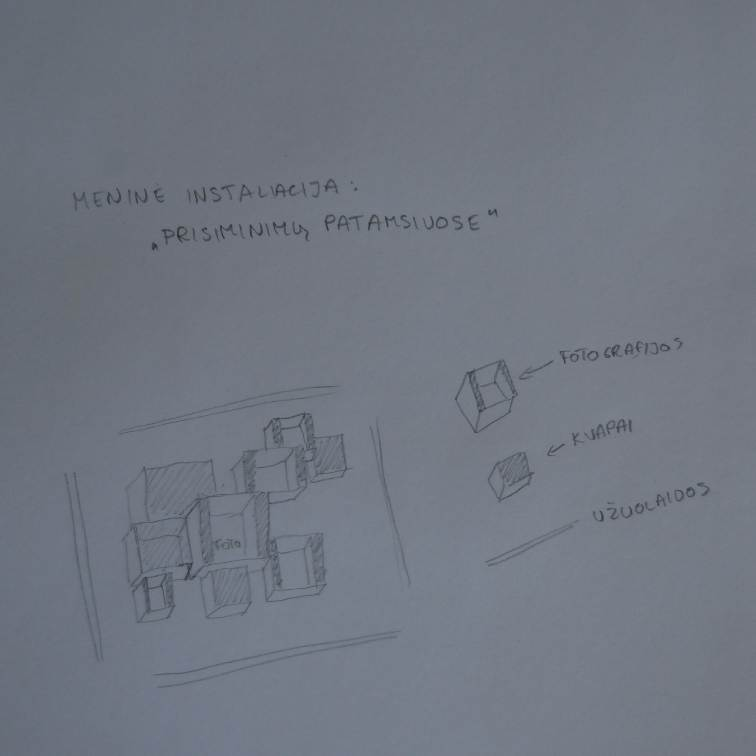 MENINĖ INSTALIACIJA:
„PRISIMINIMŲ PATAMSIUOSE"
FOTOGRAFIJOS
KVAPAI
UŽUOLAIDOS
FOTO